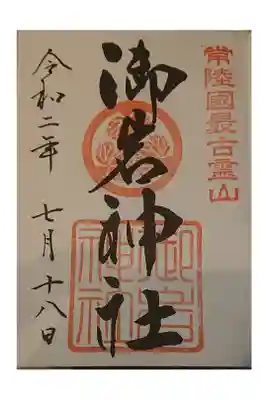 常陸國最古霊山
御岩神社
御岩神社
令和二年 七月 十八日